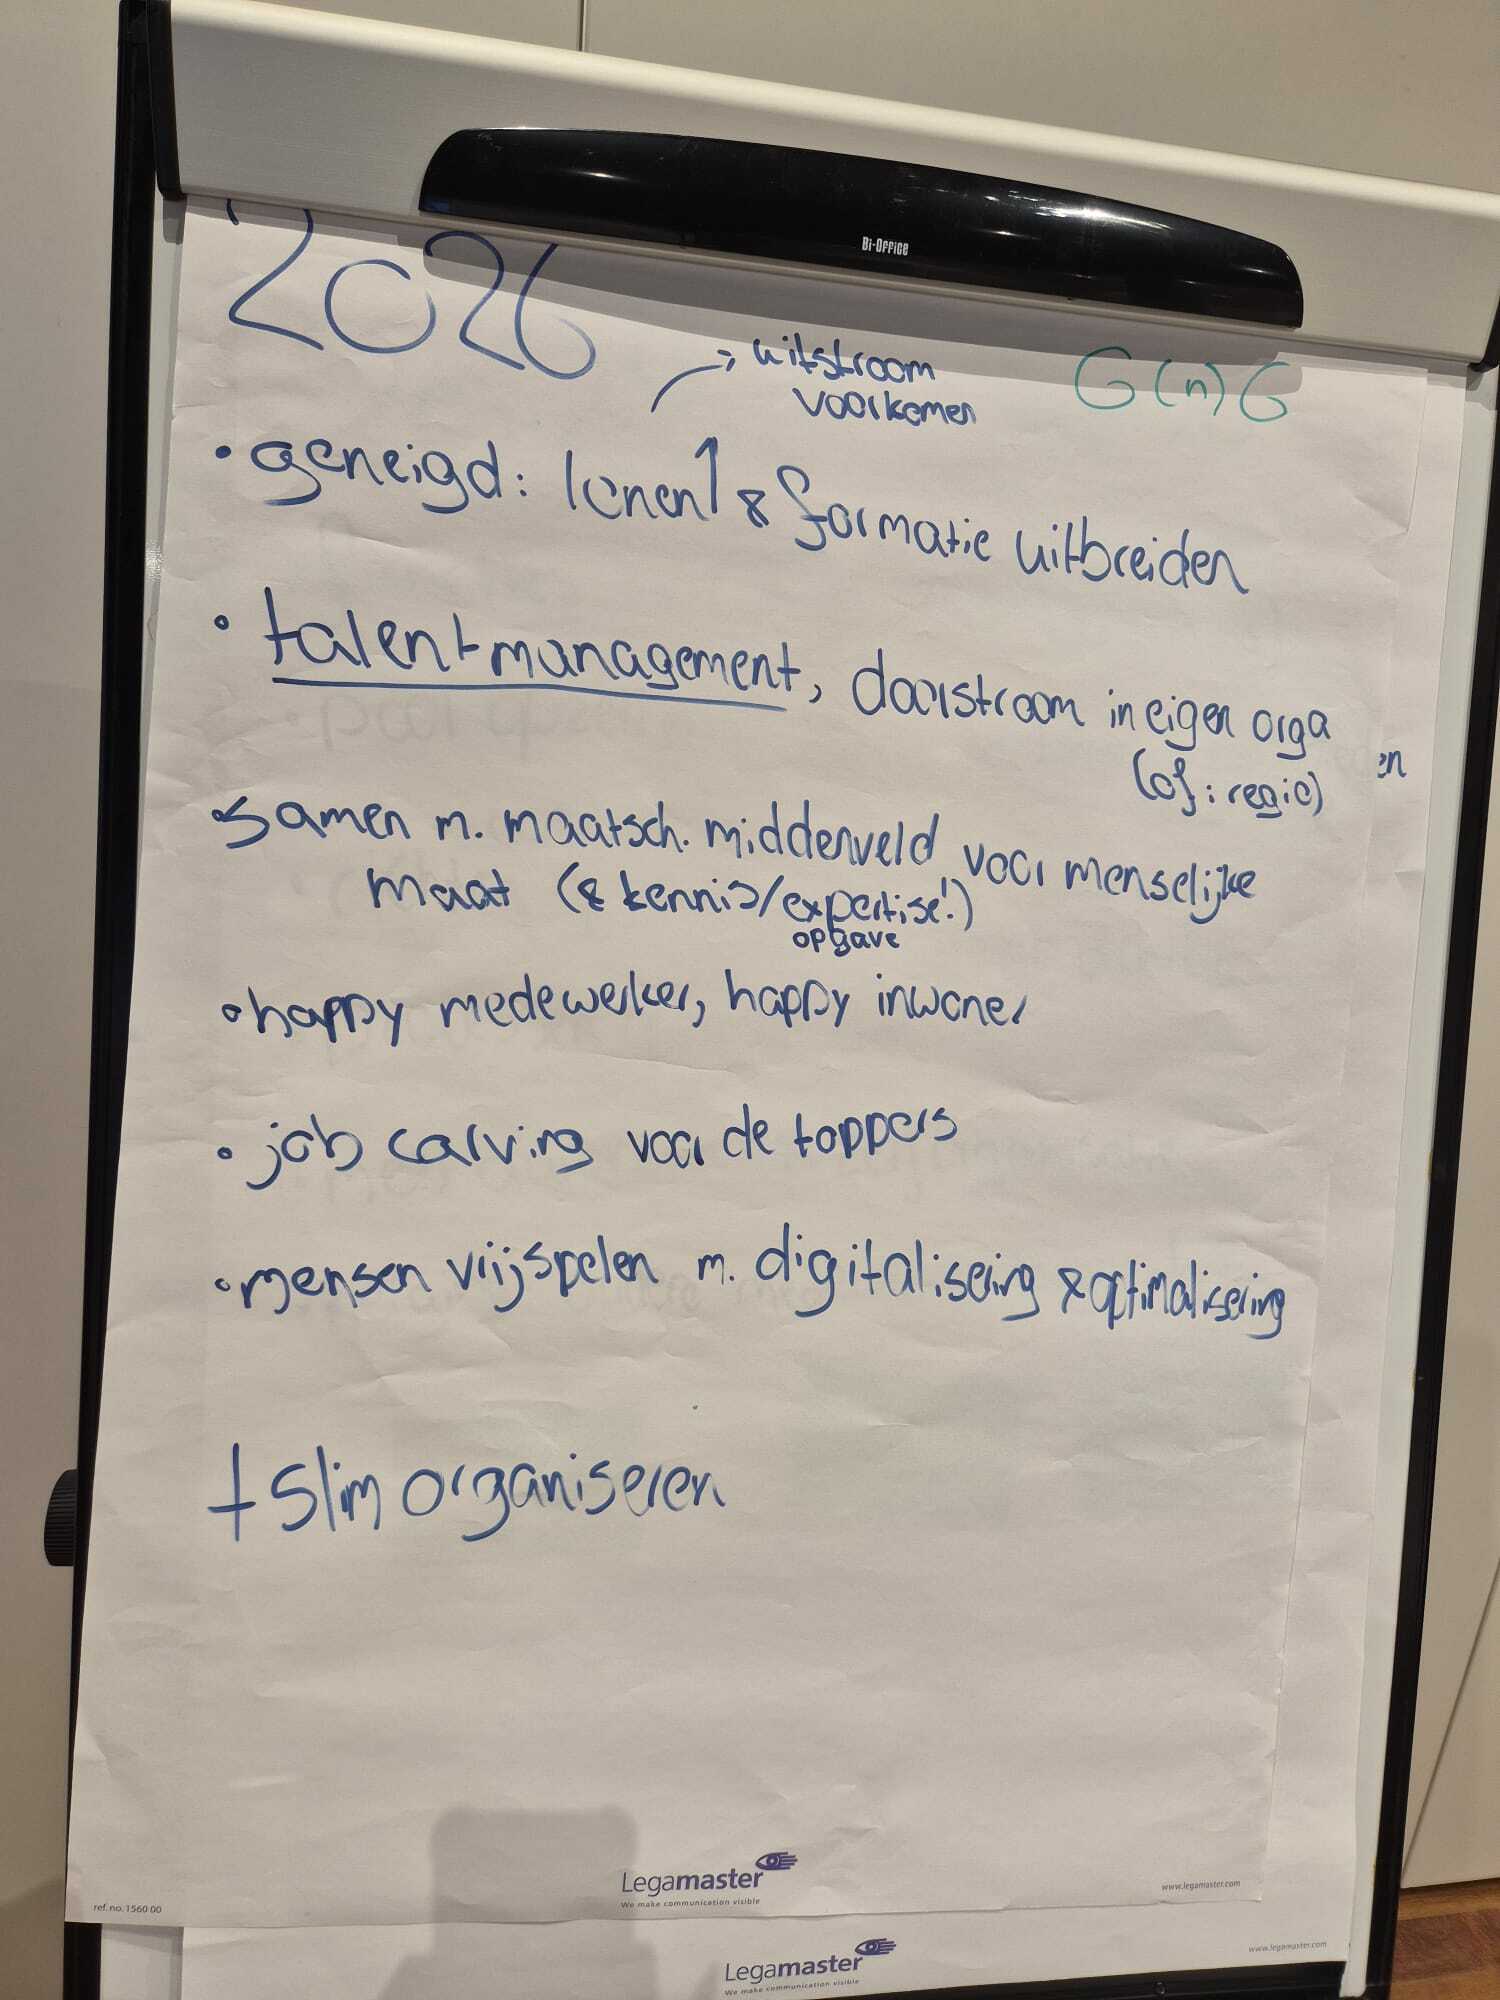 Bi-Office
2026
→ uitstroom
voorkomen
G(n)G
• geneigd: lonen↑ & formatie uitbreiden
• talentmanagement, doorstroom in eigen orga
(of: regio)
en
• samen m. maatsch. middenveld voor menselijke
maat (& kennis/expertise!)
opgave
• happy medewerker, happy inwoner
• job carving voor de toppers
• mensen vrijspelen m. digitalisering & optimalisering
+ slim organiseren
Legamaster
We make communication visible
www.legamaster.com
ref. no. 1560 00
Legamaster
We make communication visible
www.legamaster.com